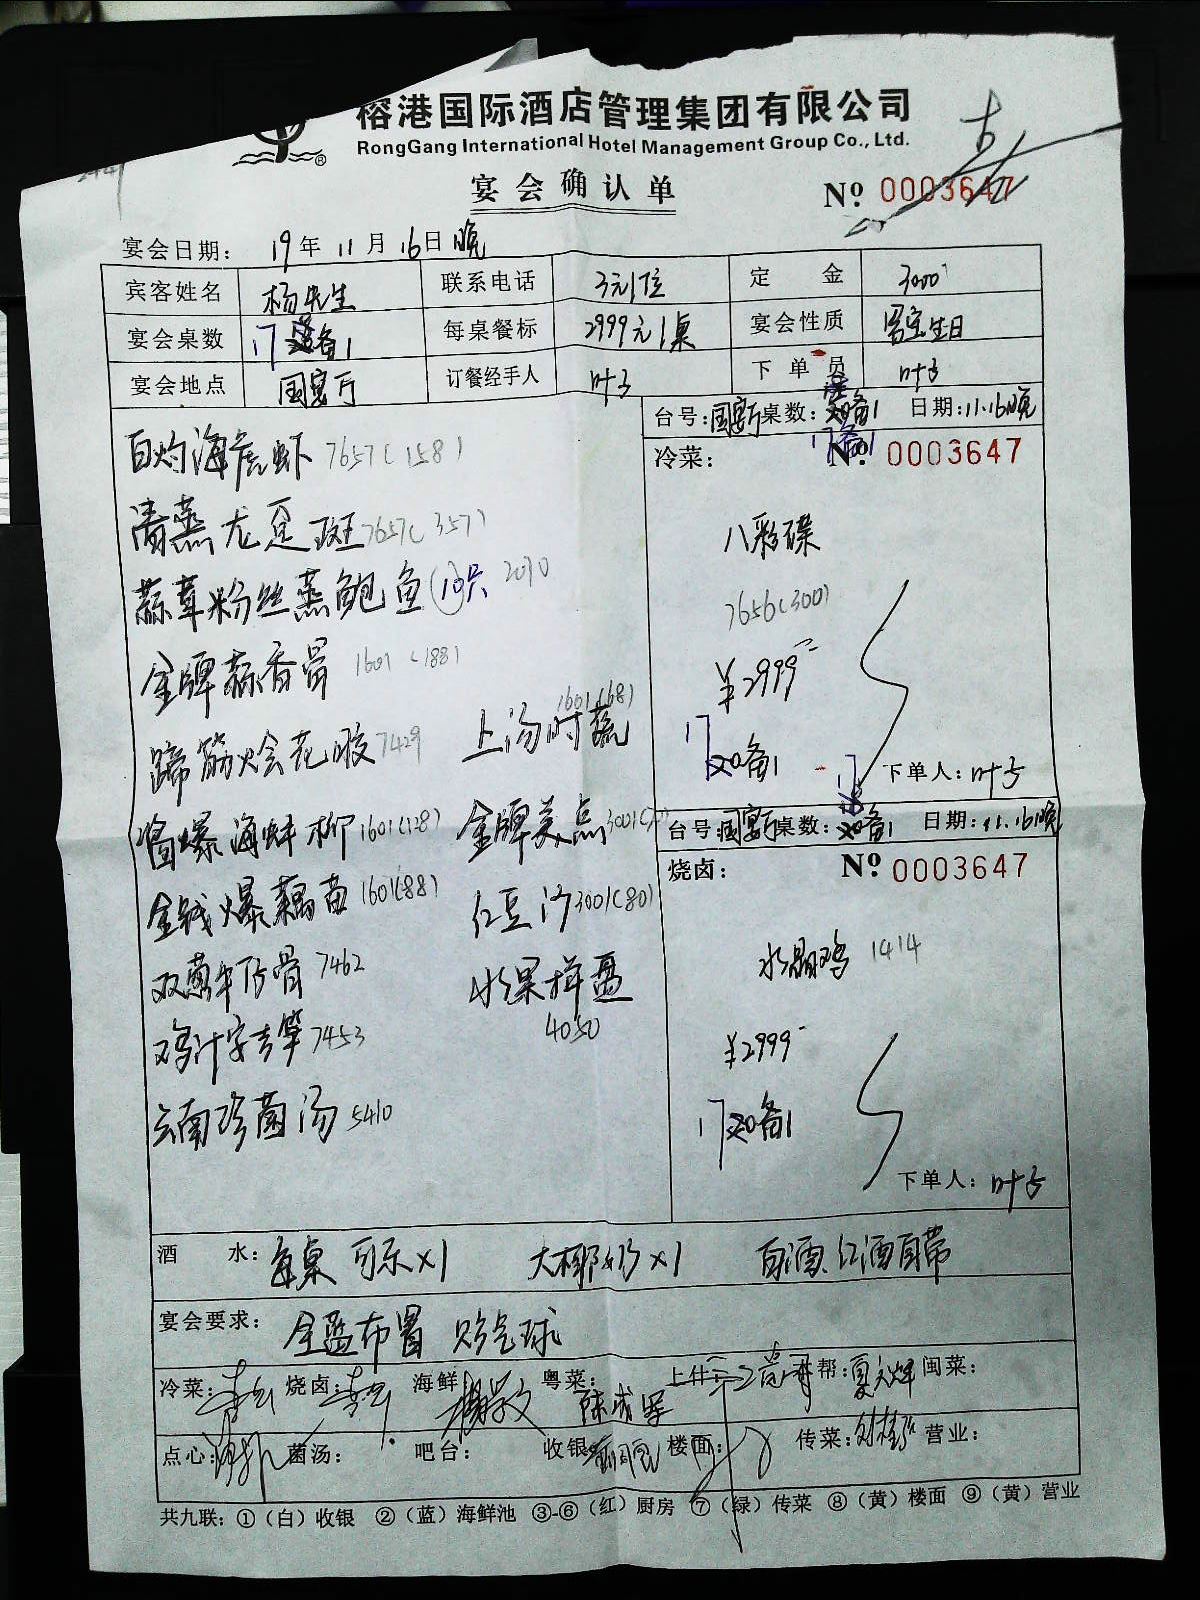 榕港国际酒店管理集团有限公司
RongGang International Hotel Management Group Co., Ltd.
宴会确认单
No. 0003647
宴会日期: 19年11月16日晚
宾客姓名 杨先生 联系电话 3元/位 定金 3000
宴会桌数 17备1 每桌餐标 2999元/桌 宴会性质 男宝生日
宴会地点 国宴厅 订餐经手人 叶子 下单员 叶子
台号: 国宴厅 桌数: 17备1 日期: 11.16晚
冷菜: No. 0003647
白灼海虎虾 7657(158)
清蒸龙趸斑 7657(357)
蒜茸粉丝蒸鲍鱼(10只) 2010
金牌蒜香骨 1601(188)
蹄筋烩花胶 7429
上汤时蔬 1601(68)
酱爆海蚌柳 1601(128)
金牌美点 3001
金钱爆藕苗 1601(88)
红豆汤 3001(80)
双葱牛仔骨 7462
水果拼盘
4050
鸡汁字吉笋 7453
云南珍菌汤 5410
八彩碟
7656(300)
¥2999-
17备1
下单人: 叶子
台号: 国宴厅 桌数: 备1 日期: 11.16晚
烧卤: No. 0003647
水晶鸡 1414
¥2999-
17备1
下单人: 叶子
酒水: 每桌 可乐×1 大椰奶×1 白酒、红酒自带
宴会要求: 全蓝布置 贴气球
冷菜: 烧卤: 海鲜 粤菜: 陈成军 上什 帮: 夏 闽菜:
点心: 菌汤: 吧台: 收银 楼面: 传菜: 营业:
共九联: ①(白)收银 ②(蓝)海鲜池 ③-⑥(红)厨房 ⑦(绿)传菜 ⑧(黄)楼面 ⑨(黄)营业